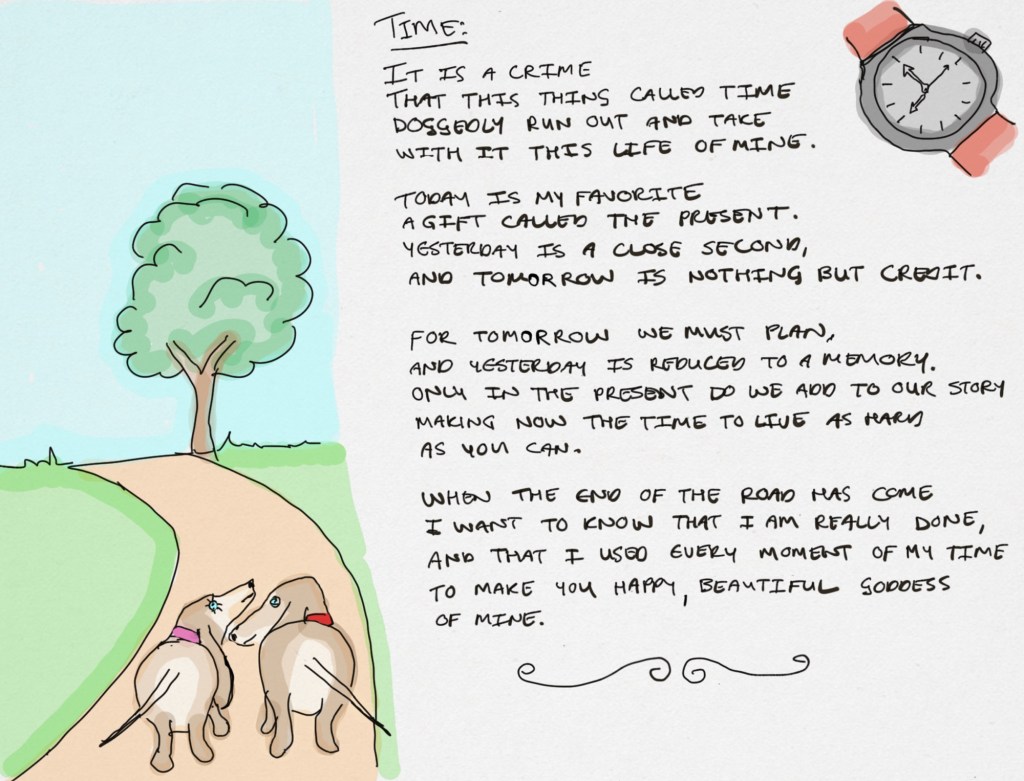 TIME:
IT IS A CRIME
THAT THIS THING CALLED TIME
DOGGEDLY RUN OUT AND TAKE
WITH IT THIS LIFE OF MINE.
TODAY IS MY FAVORITE
A GIFT CALLED THE PRESENT.
YESTERDAY IS A CLOSE SECOND,
AND TOMORROW IS NOTHING BUT CREDIT.
FOR TOMORROW WE MUST PLAN,
AND YESTERDAY IS REDUCED TO A MEMORY.
ONLY IN THE PRESENT DO WE ADD TO OUR STORY
MAKING NOW THE TIME TO LIVE AS HARD
AS YOU CAN.
WHEN THE END OF THE ROAD HAS COME
I WANT TO KNOW THAT I AM REALLY DONE,
AND THAT I USED EVERY MOMENT OF MY TIME
TO MAKE YOU HAPPY, BEAUTIFUL GODDESS
OF MINE.